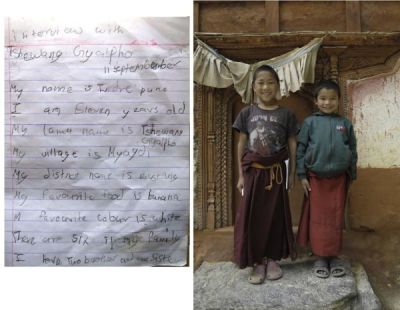 Interview with
Tshewang Gyalpho
11 september
My name is Indre pune
I am Eleven years old
My lama name is Tshewang
Gyalpho
My village is
My distric name is
My favourite food is banana
M favourite colour is white
There are six my family
I have Two brother and one siste